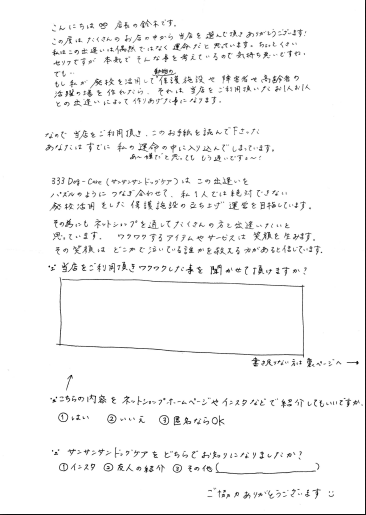 こんにちは 店長の鈴木です。
この度は たくさんの お店の中から 当店を 選んで頂き ありがとうございます!
私はこの出逢いは偶然ではなく 運命だと思っています。ちょいくさい
セリフですが 本気でそんな事を考えているので 気持ち悪いですね。
でも…
もし 私が 廃校を活用して 動物の保護施設 や 障害者や高齢者の
活躍の場を作れたら、それは 当店をご利用頂いた お1人お1人
との出逢いによって作りあげた事になります。
なので 当店をご利用頂き、このお手紙を読んで下さった
あなたは すでに 私の運命の中に入り込んでしまっています。
あ〜嫌だと思っても もう遅いですよ〜!
333 Dog-Care (サンサンサンドッグケア) は この出逢いを
パズルのように つなぎ合わせて、私1人では絶対できない
廃校活用 をした 保護施設の立ち上げ 運営を目指しています。
その為にも ネットショップを通して たくさんの方と出逢いたいと
思っています。 ワクワクするアイテムやサービスは 笑顔を生みます。
その笑顔は どこかで泣いている誰かを救える力があると信じています。
当店をご利用頂きワクワクした事を 聞かせて頂けますか?
書き足りない方は 裏ページへ →
こちらの内容を ネットショップホームページやインスタなどで 紹介してもいいですか。
①はい ②いいえ ③匿名ならOK
サンサンサンドッグケア を どちらでお知りになりましたか?
①インスタ ②友人の紹介 ③その他( )
ご協力ありがとうございます